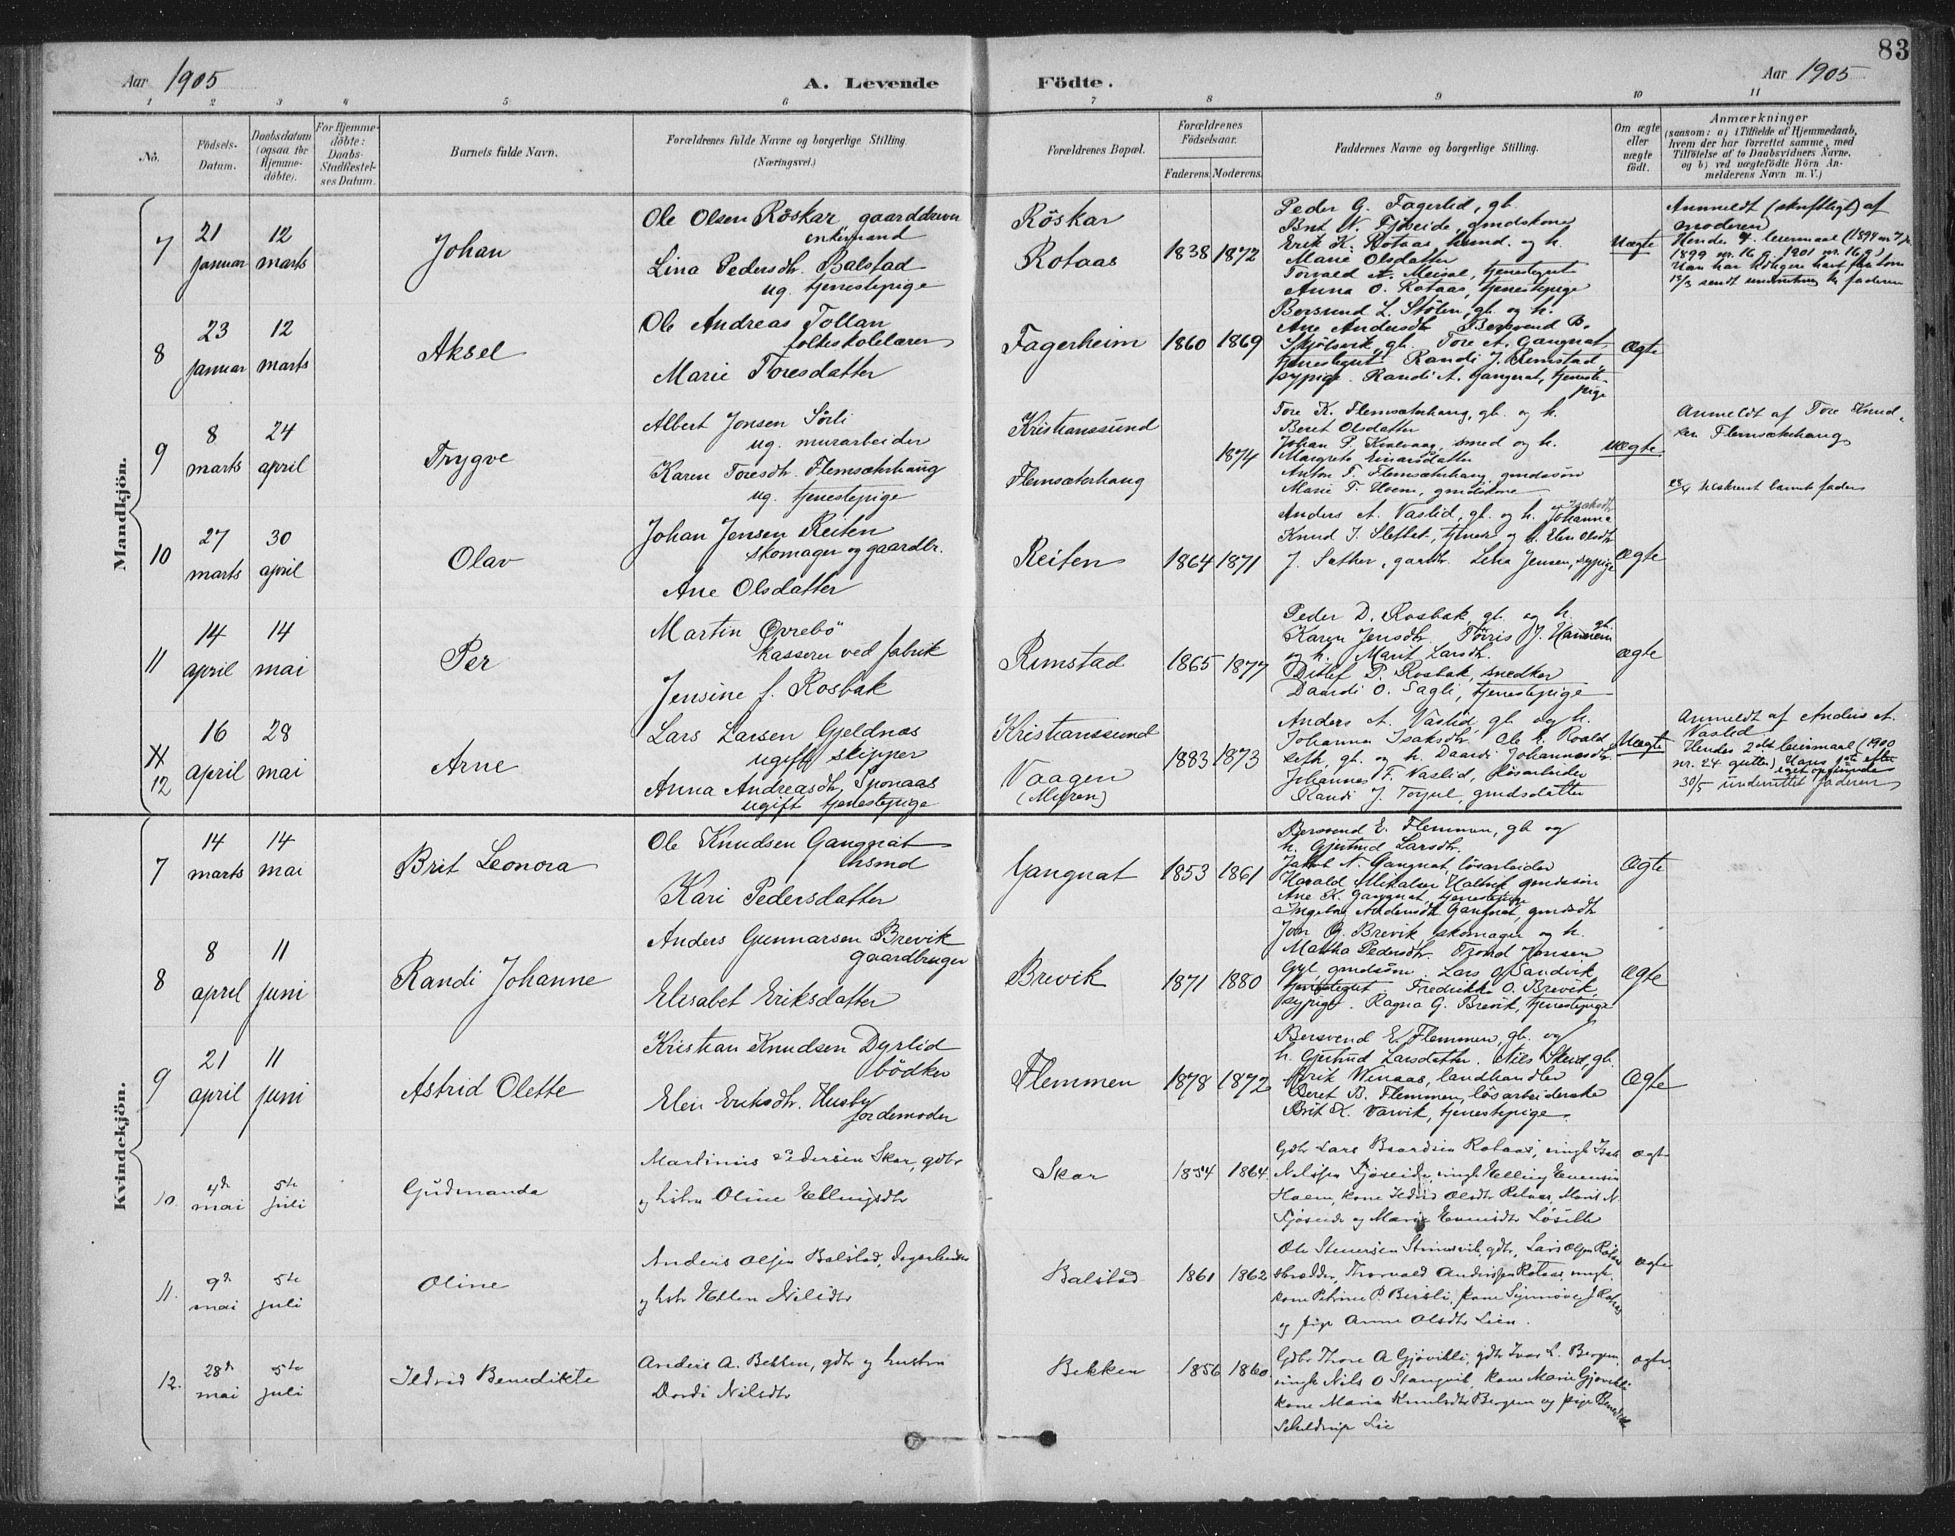 83
Aar 1905
A. Levende Födte.
Aar 1905
1 2 3 4 5 6 7 8 9 10 11
No.
Födsels-Datum.
Daabsdatum (ogsaa for Hjemme-döbte).
For Hjemme-döbte: Daabs-Stadfæstel-ses Datum.
Barnets fulde Navn.
Forældrenes fulde Navne og borgerlige Stilling.
(Næringsvei.)
Forældrenes Bopæl.
Forældrenes Födselsaar.
Faderens. Moderens.
Faddernes Navne og borgerlige Stilling.
Om ægte eller uægte födt.
Anmærkninger
(saasom: a) i Tilfælde af Hjemmedaab,
hvem der har forrettet samme, med
Tilföielse af to Daabsvidners Navne,
og b) ved uægtefödte Börn An-
melderens Navn m. V.)
Mandkjön.
7
21 januar
12 marts
Johan
Ole Olsen Röskar gaarddreng
enkemand
Lina Pedersdtr. Balstad
ug. tjenestepige
Röskar
Rotaas
1838 1872
Peder G. Fagerlid, gb.
Erik K. Rotaas, husmd. og h.
Marie Olsdatter
Torvald A. Meisal, tjenestegut
Anna O. Rotaas, tjenestepige
Uægte
Anmeldt (skriftligt) af
moderen
Hendes 4. leiermaal (1894 nr 7,
1899 nr. 16 g. 1901 nr. 16 g.)
8
23 januar
12 marts
Aksel
Ole Andreas Tollan
folkeskolelærer
Marie Toresdatter
Fagerheim
1860 1869
Bersvend L. Stölen, gb. og h.
Ane Andersdtr. Bersvend B.
Skjölsvik, gb. Tore A. Gangnat,
tjenestegut. Randi J. Rimstad
sypige. Randi A. Gangnat, tjeneste-
pige
Ægte
9
8 marts
24 april
Trygve
Albert Jonsen Sörli
ug. murarbeider
Karen Toresdtr. Flemsæterhaug
ug. tjenestepige
Kristianssund
Flemsæterhaug
1874
Tore K. Flemsæterhaug, gb. og h.
Beret Olsdatter
Johan P. Kvalvaag, smed og h.
Margrete Einarsdatter
Anton T. Flemsæterhaug, gmdssön
Marie T. Hoem, gmdskone
uægte
Anmeldt af Tore Knud-
sen Flemsæterhaug
10
27 marts
30 april
Olav
Johan Jensen Reiten
skomager og gaardbr.
Ane Olsdatter
Reiten
1864 1871
Anders A. Vaslid, gb. og h. Johanne
Isaksdtr.
J. Sæther, gartner. Lina Jensen, sypige
Ægte
11
14 april
14 mai
Per
Martin Øvrebö
kasserer ved fabrik
Jensine f. Rosbak
Rimstad
1865 1877
Peder D. Rosbak, gb. og h.
Karen Jensdtr. Törris J. Hannem gb.
og h. Marit Larsdtr.
Detlef P. Rosbak, snedker
Daardi O. Sagli, tjenestepige
Ægte
12
16 april
28 mai
Arne
Lars Larsen Gjeldnæs
ugift skipper
Anna Andreasdtr. Sponaas
ugift tjenestepige
Kristianssund
Vaagen
(Myren)
1883 1873
Anders A. Vaslid, gb. og h.
Johanna Isaksdtr. Ole K. Roald-
seth, gb. og h. Daardi Johannesdtr.
Johannes F. Vaslid, lösarbeider
Randi J. Torjul, gmdsdatter
Uægte
Anmeldt af Anders A.
Vaslid
Hendes 2det leiermaal (1900
nr. 24 gutter) Hans 1ste efter
eget opgivende
30/5 underrettet faderen
Kvindekjön.
7
14 marts
14 mai
Brit Leonora
Ole Knudsen Gangnat
husmd
Kari Pedersdatter
Gangnat
1853 1861
Bersvend E. Flemmen, gb. og
h. Gjertrud Larsdtr.
Jakob N. Gangnat, lösarbeider
Harald Mikalsen Halvik gmdssön
Ane K. Gangnat, tjenestepige
Ingeborg Andersdtr. Gangnat, gmdsdtr
Ægte
8
8 april
11 juni
Randi Johanne
Anders Gunnarsen Brevik
gaardbruger
Elisabet Eriksdatter
Brevik
1871 1880
Jon G. Brevik skomager og h.
Martha Pedersdtr. Trond Jonsen
Gyl, gmdssön. Lars O. Sandvik
tjenestegut. Fredrikke O. Brevik
sypige. Ragna G. Brevik, tjenestepige
Ægte
9
21 april
11 juni
Astrid Olette
Kristian Knudsen Dyrlid
bödker
Elen Eriksdtr. Husby
jordemoder
Flemmen
1878 1872
Bersvend E. Flemmen, gb. og
h. Gjertrud Larsdatter. Nils Skeid, gb.
Erik Winaas, landhandler
Beret B. Flemmen, lösarbeiderske
Brit K. Varvik, tjenestepige.
Ægte
10.
4de mai
5te juli
Gudmanda
Martinus Pedersen Skar, gdbr
og hstru Oline Ellingsdtr
Skar
1854 1864
Gdbr Lars Baardsen Rotaas, ungk.
Nilssen Fjöseide, ungk Elling Evensen
Hoem, kone Ildrid Olsdtr Rotaas, Marit N.
Fjöseide og Marie Evensdtr Löseth
ægte
11.
9de mai
5te juli
Oline
Anders Olsen Balstad, dagarbeider
og hstr Ellen Nilsdtr
Balstad
1861 1862
Ole Steversen Stensvik, gdbr, Lars Olsen Rotaas
skrædder, Thorvald Anderssen Rotaas, ungk.
kone Petrine P. Bersli, kone Synnöve J Rotaas
og pige Anne Olsdtr Lien.
ægte
12.
28de mai
5te juli
Ildrid Benedikte
Anders A. Bekken, gdbr og hustru
Dordi Nilsdtr
Bekken
1856 1860
Gdbr Thore A Gjövikli, gdbr Ivar L. Bergem,
ungk Nils O Stangvik, kone Marie Gjövikli
kone Maria Knudsdtr Bergem og pige Benedikte
Schuldrup Lie
ægte